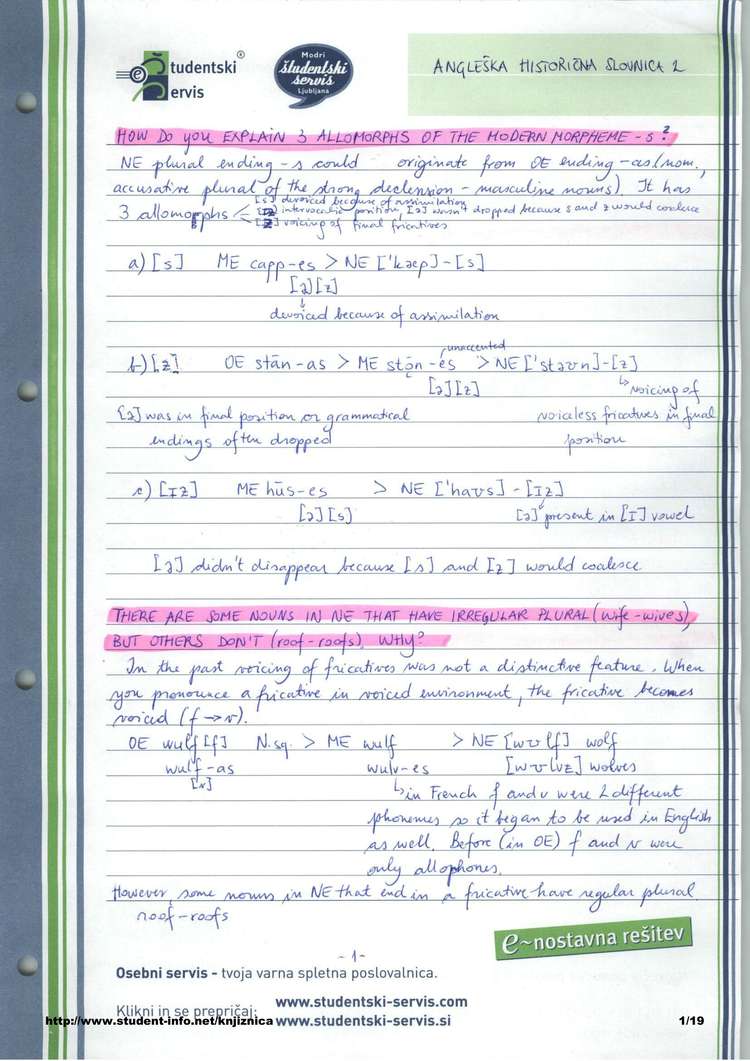 Študentski ®
Servis
Modri
študentski
servis
Ljubljana
ANGLEŠKA HISTORIČNA SLOVNICA 2
HOW DO YOU EXPLAIN 3 ALLOMORPHS OF THE MODERN MORPHEME -S?
NE plural ending -s could originate from OE ending -as (nom.,
accusative plural of the strong declension - masculine nouns). It has
3 allomorphs
[s] devoiced because of assimilation
[ɪz] intervocalic position, [ə] wasn't dropped because s and z would coalesce
[z] voicing of final fricatives
a) [s] ME capp-es > NE ['kæp]-[s]
[ə][z]
↓
devoiced because of assimilation
unaccented
b) [z] OE stān-as > ME stǭn-es > NE ['stəʊn]-[z]
[ə][z] ↳ voicing of
[ə] was in final position or grammatical voiceless fricatives in final
endings often dropped position
c) [ɪz] ME hūs-es > NE ['haʊs]-[ɪz]
[ə][s] [ə] present in [ɪ] vowel
[ə] didn't disappear because [s] and [z] would coalesce
THERE ARE SOME NOUNS IN NE THAT HAVE IRREGULAR PLURAL (wife-wives),
BUT OTHERS DON'T (roof-roofs). WHY?
In the past voicing of fricatives was not a distinctive feature. When
you pronounce a fricative in voiced environment, the fricative becomes
voiced (f → v).
OE wulf [f] N.sg. > ME wulf > NE [wʊlf] wolf
wulf-as wulv-es [wʊlvz] wolves
[v] ↳ in French f and v were 2 different
phonemes so it began to be used in English
as well. Before (in OE) f and v were
only allophones.
However, some nouns in NE that end in a fricative have regular plural
roof-roofs
e~nostavna rešitev
-1-
Osebni servis - tvoja varna spletna poslovalnica.
Klikni in se prepričaj: www.studentski-servis.com
http://www.student-info.net/knjiznica www.studentski-servis.si 1/19